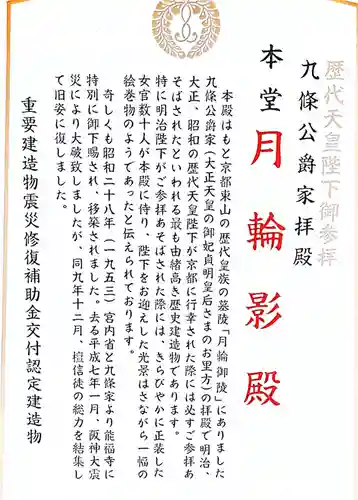 歴代天皇陛下御参拝
九條公爵家拝殿
本堂 月輪影殿
本殿はもと京都東山の歴代皇族の墓陵「月輪御陵」にありました
九條公爵家(大正天皇の御妃貞明皇后さまのお里方)の拝殿で明治、
大正、昭和の歴代天皇陛下が京都に行幸された際には必ずご参拝あ
そばされたといわれる最も由緒高き歴史建造物であります。
特に明治陛下がご参拝あそばされた際には、きらびやかに正装した
女官数十人が本殿に侍り、陛下をお迎えした光景はさながら一幅の
絵巻物のようであったと伝えられております。
奇しくも昭和二十八年(一九五三)宮内省と九條家より能福寺に
特別に御下賜され、移築されました。去る平成七年一月、阪神大震
災により大破致しましたが、同九年十二月、檀信徒の総力を結集し
て旧姿に復しました。
重要建造物震災修復補助金交付認定建造物